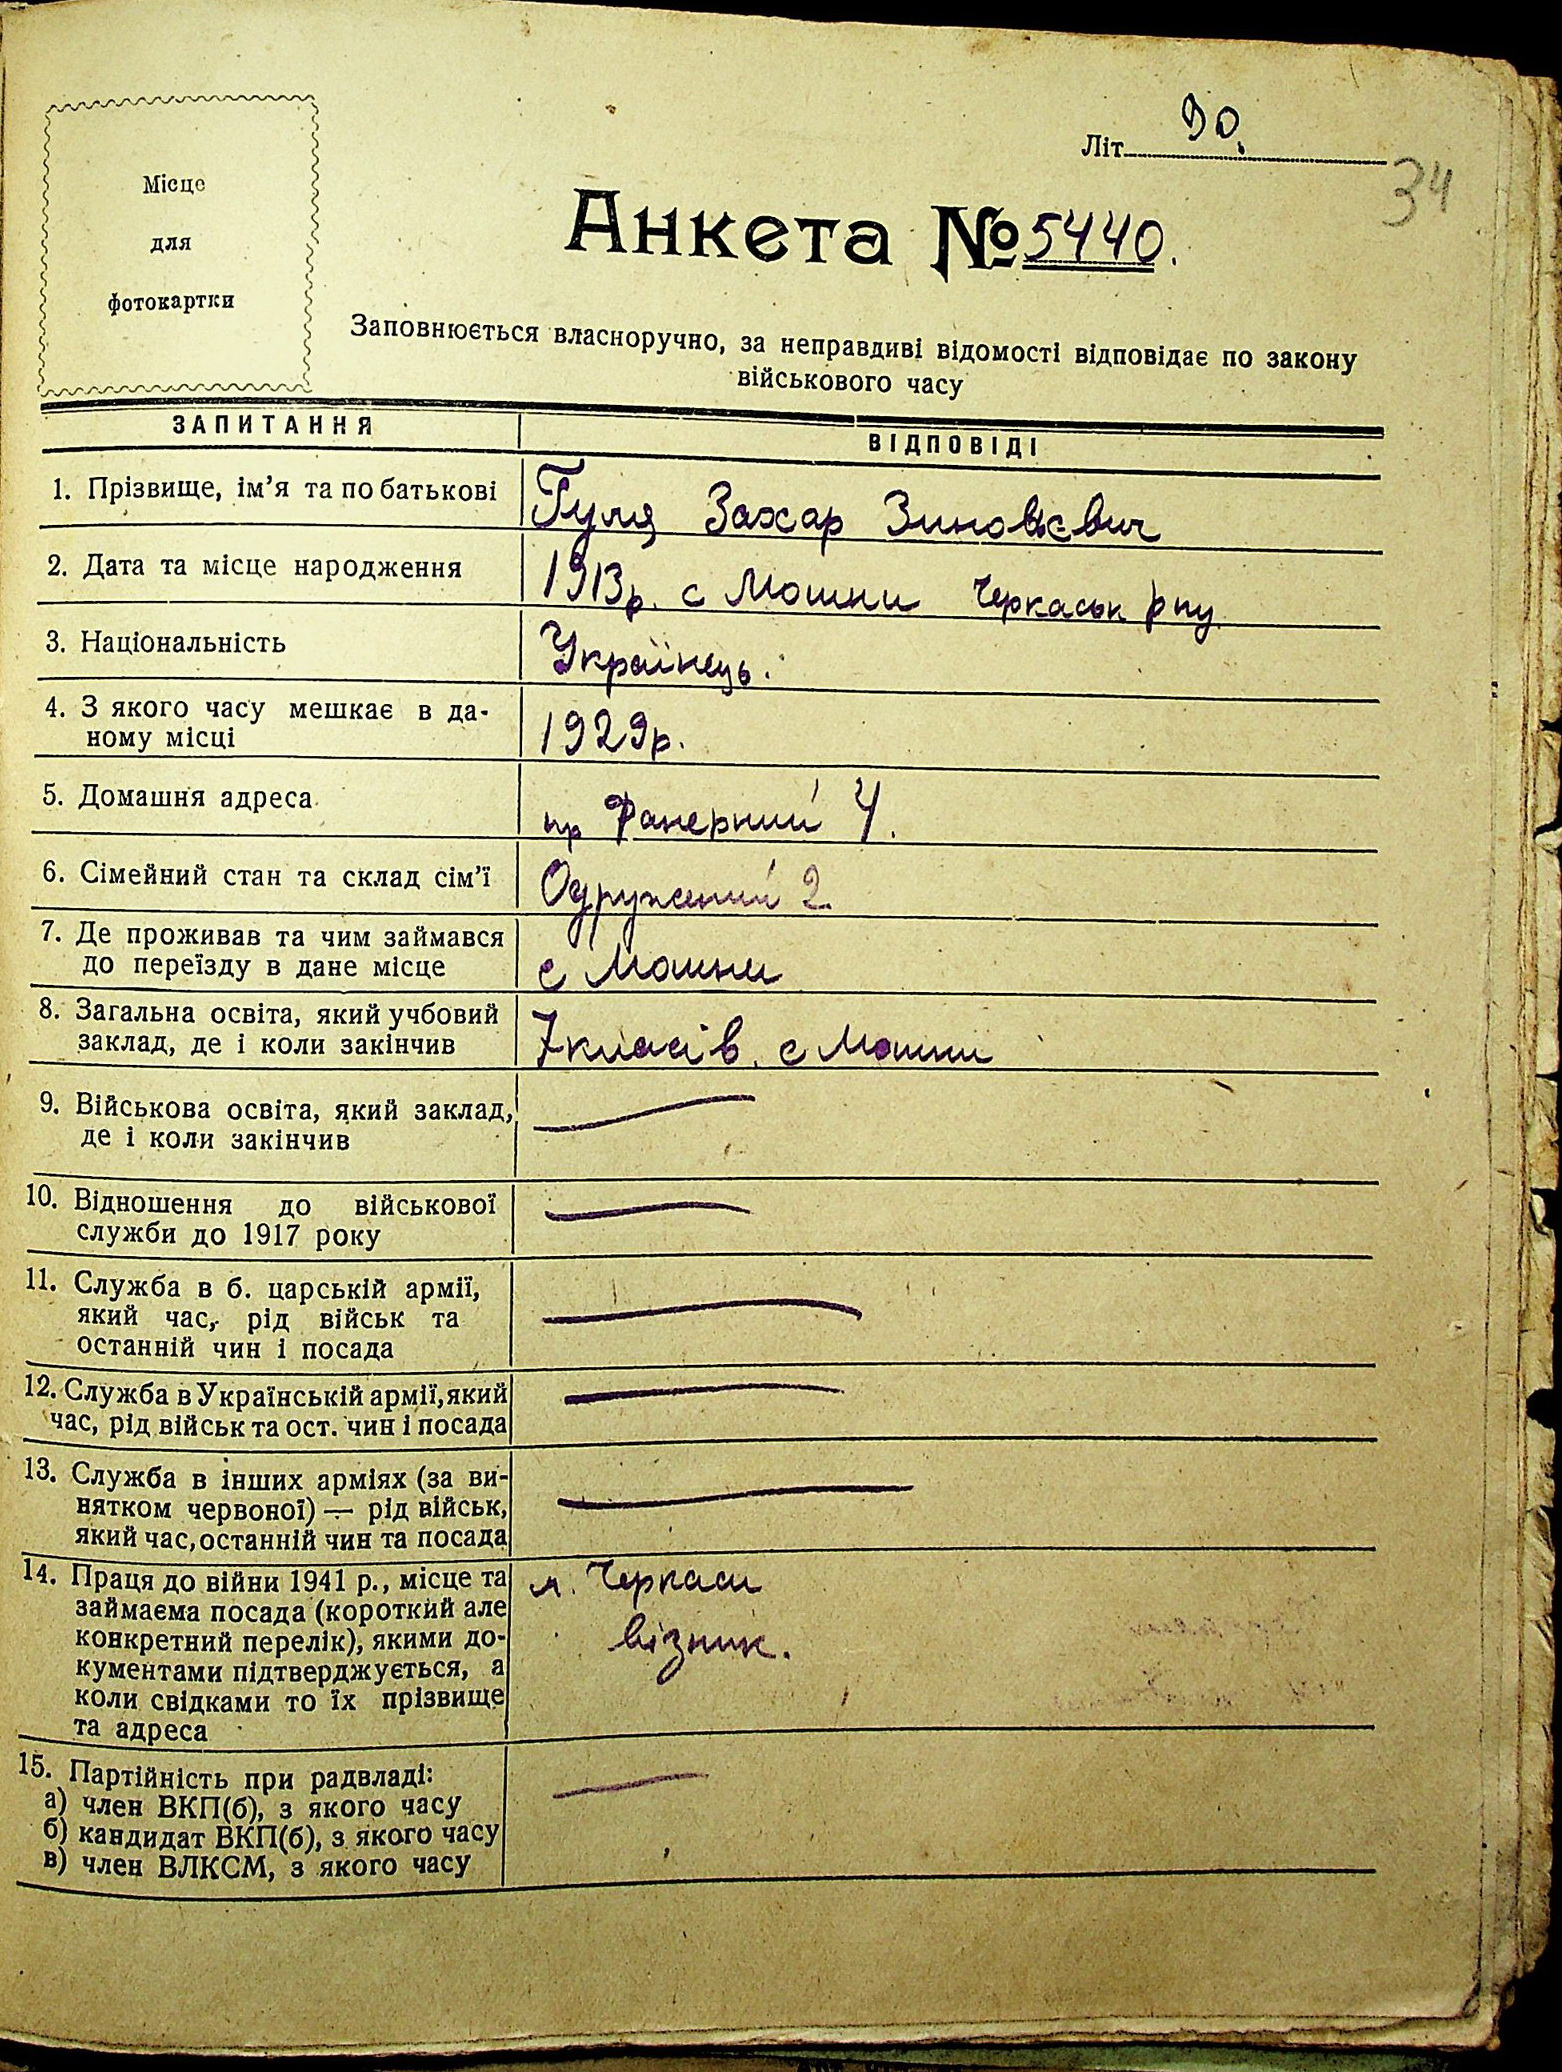 Літ 90.
34
Місце
для
фотокартки
Анкета № 5440.
Заповнюється власноручно, за неправдиві відомості відповідає по закону
військового часу
ЗАПИТАННЯ ВІДПОВІДІ
1. Прізвище, ім'я та по батькові Гуля Захар Зиновієвич
2. Дата та місце народження 1913р. с Мошни Черкаськ рну
3. Національність Українець.
4. З якого часу мешкає в да-
ному місці 1929р.
5. Домашня адреса пр Фанерний 4.
6. Сімейний стан та склад сім'ї Одружений 2.
7. Де проживав та чим займався
до переїзду в дане місце с Мошни
8. Загальна освіта, який учбовий
заклад, де і коли закінчив 7 класів. с Мошни
9. Військова освіта, який заклад,
де і коли закінчив —
10. Відношення до військової
служби до 1917 року —
11. Служба в б. царській армії,
який час, рід військ та
останній чин і посада —
12. Служба в Українській армії, який
час, рід військ та ост. чин і посада —
13. Служба в інших арміях (за ви-
нятком червоної) — рід військ,
який час, останній чин та посада —
14. Праця до війни 1941 р., місце та м. Черкаси
займаєма посада (короткий але
конкретний перелік), якими до- візник.
кументами підтверджується, а
коли свідками то їх прізвище
та адреса
15. Партійність при радвладі: —
а) член ВКП(б), з якого часу
б) кандидат ВКП(б), з якого часу
в) член ВЛКСМ, з якого часу